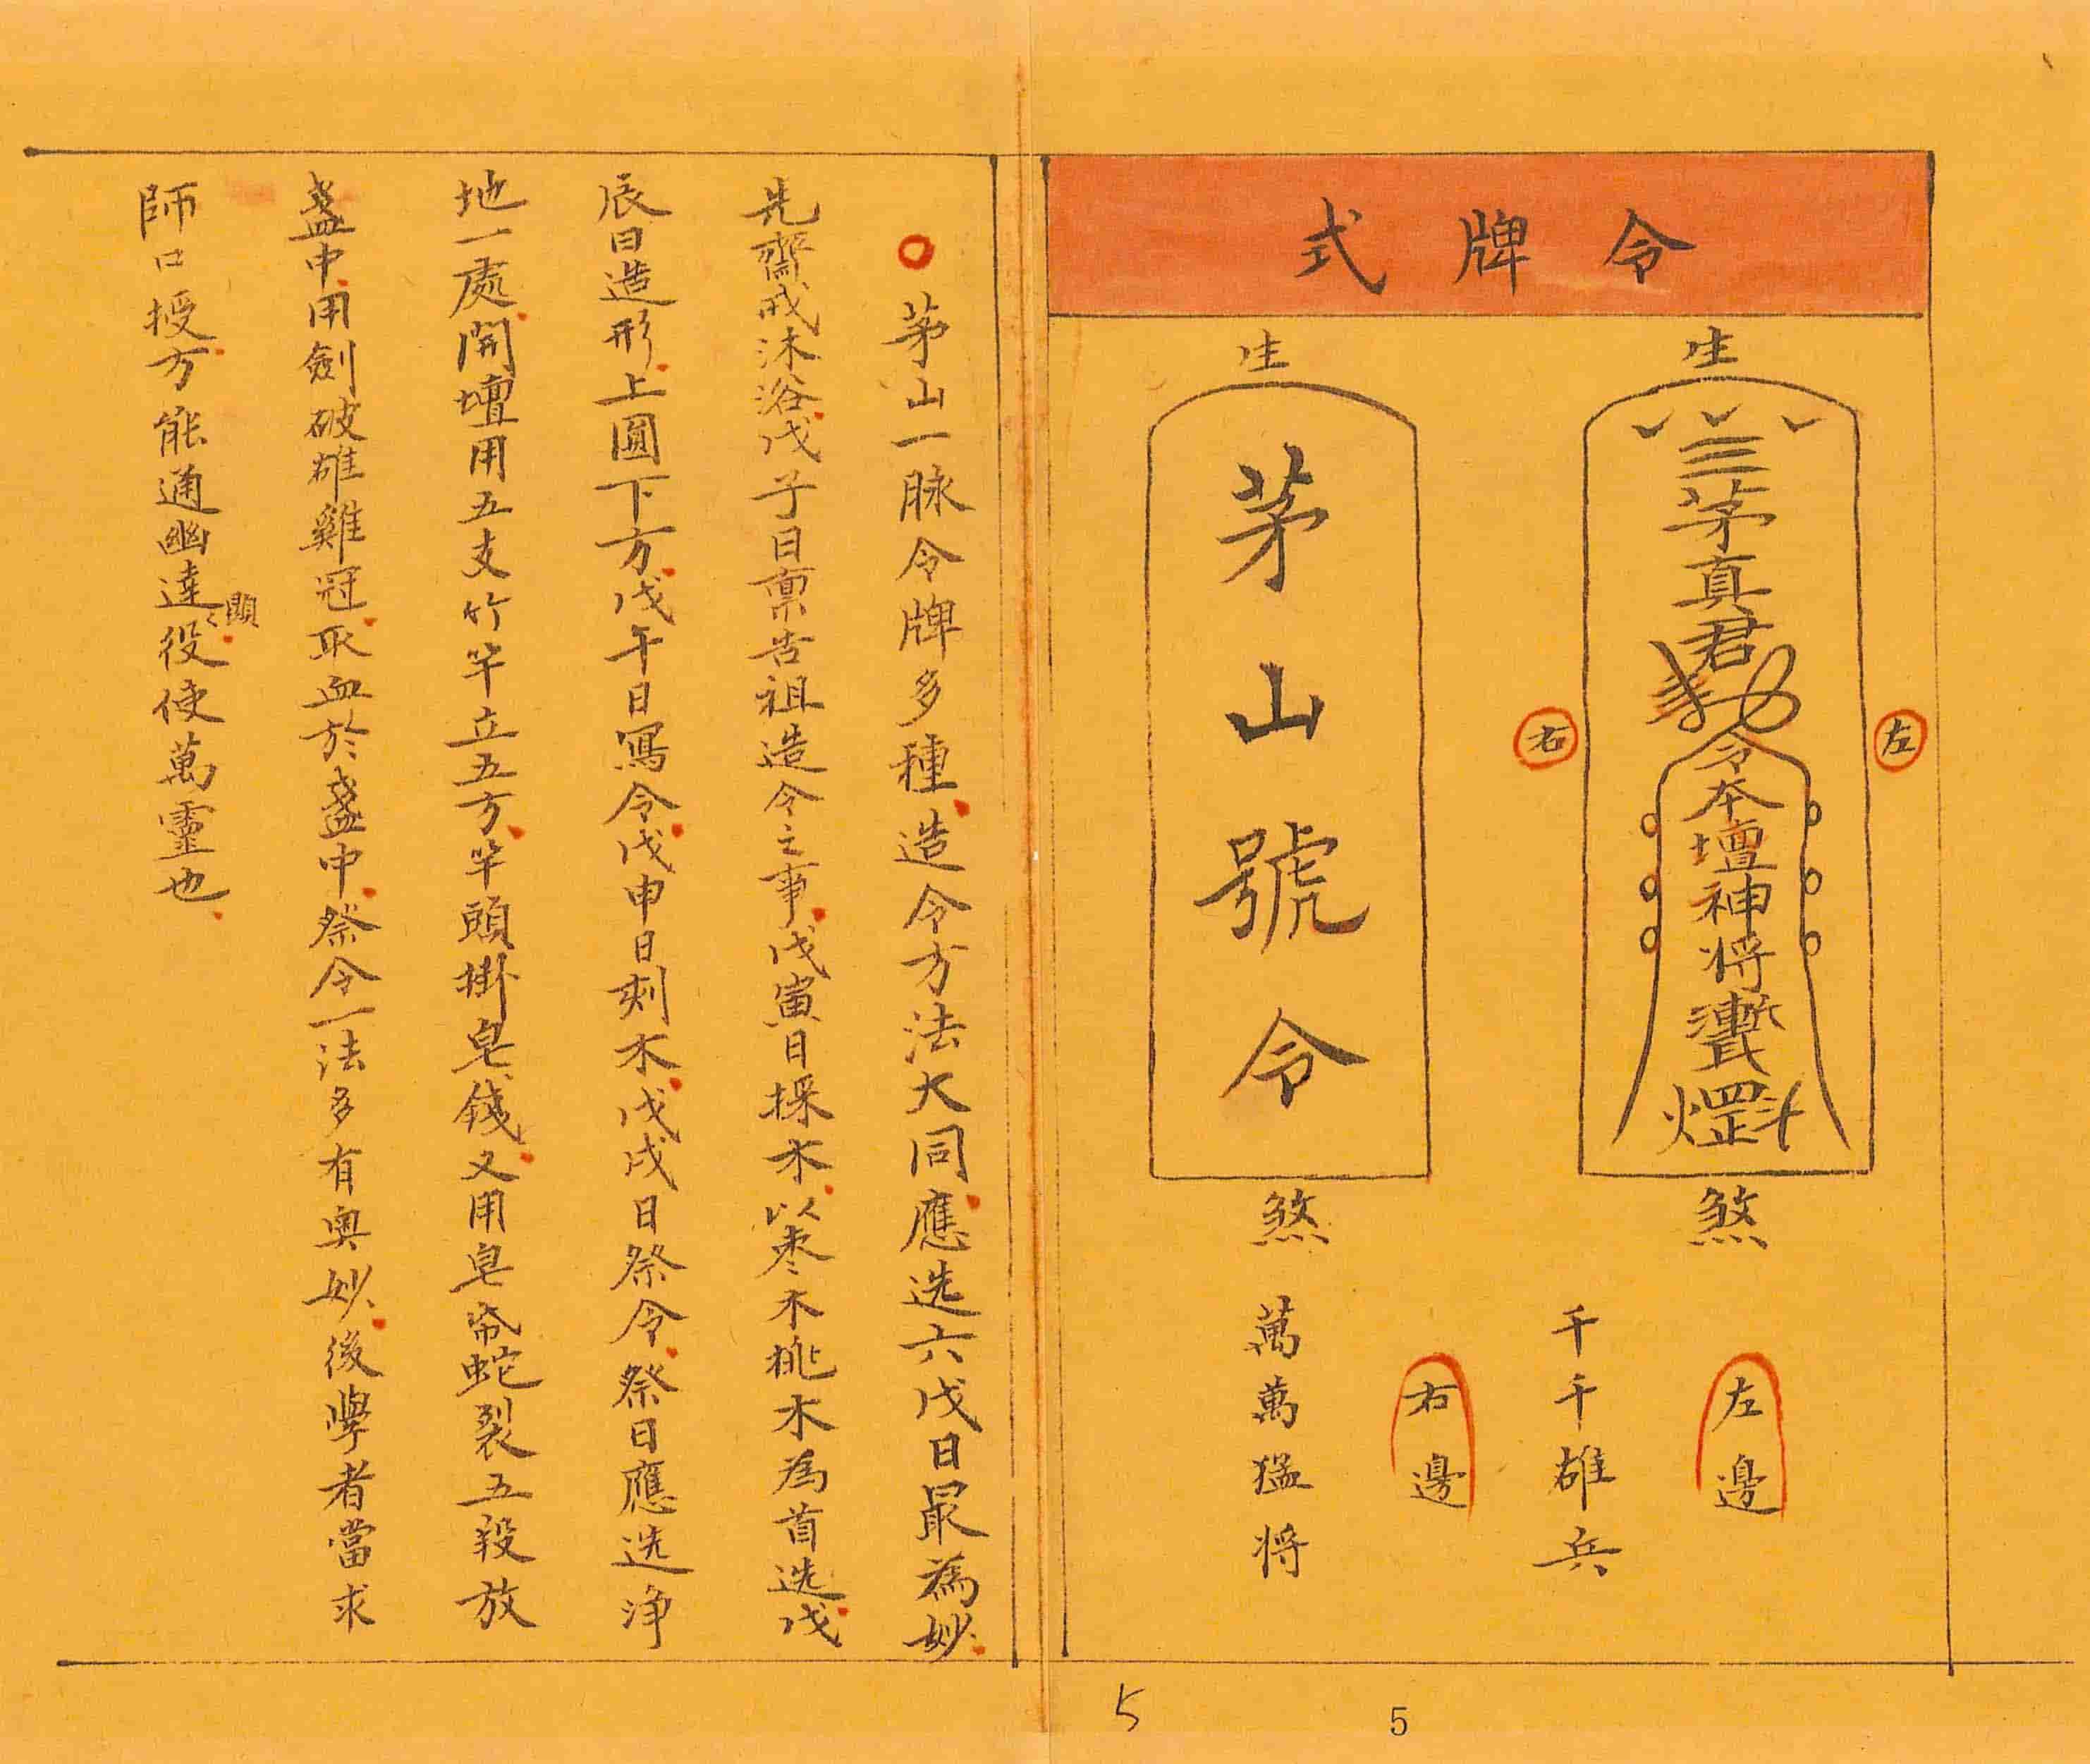 令牌式
生
三茅真君勅令本壇神将
煞
左
右
生
茅山號令
煞
左邊
千千雄兵
右邊
萬萬猛将
茅山一脉令牌多種造令方法大同應选六戊日最為妙
先齋戒沐浴戊子日禀告祖造令之事戊寅日採木以枣木桃木為首选戊
辰日造形上圓下方戊午日寫令戊申日刻木戊戌日祭令祭日應选净
地一處開壇用五支竹竿立五方竿頭掛皂錢又用皂帋蛇裂五段放
盏中用劍破雄雞冠取血於盏中祭令一法多有奥妙後學者當求
師口授方能通幽達顯役使萬靈也
5
5